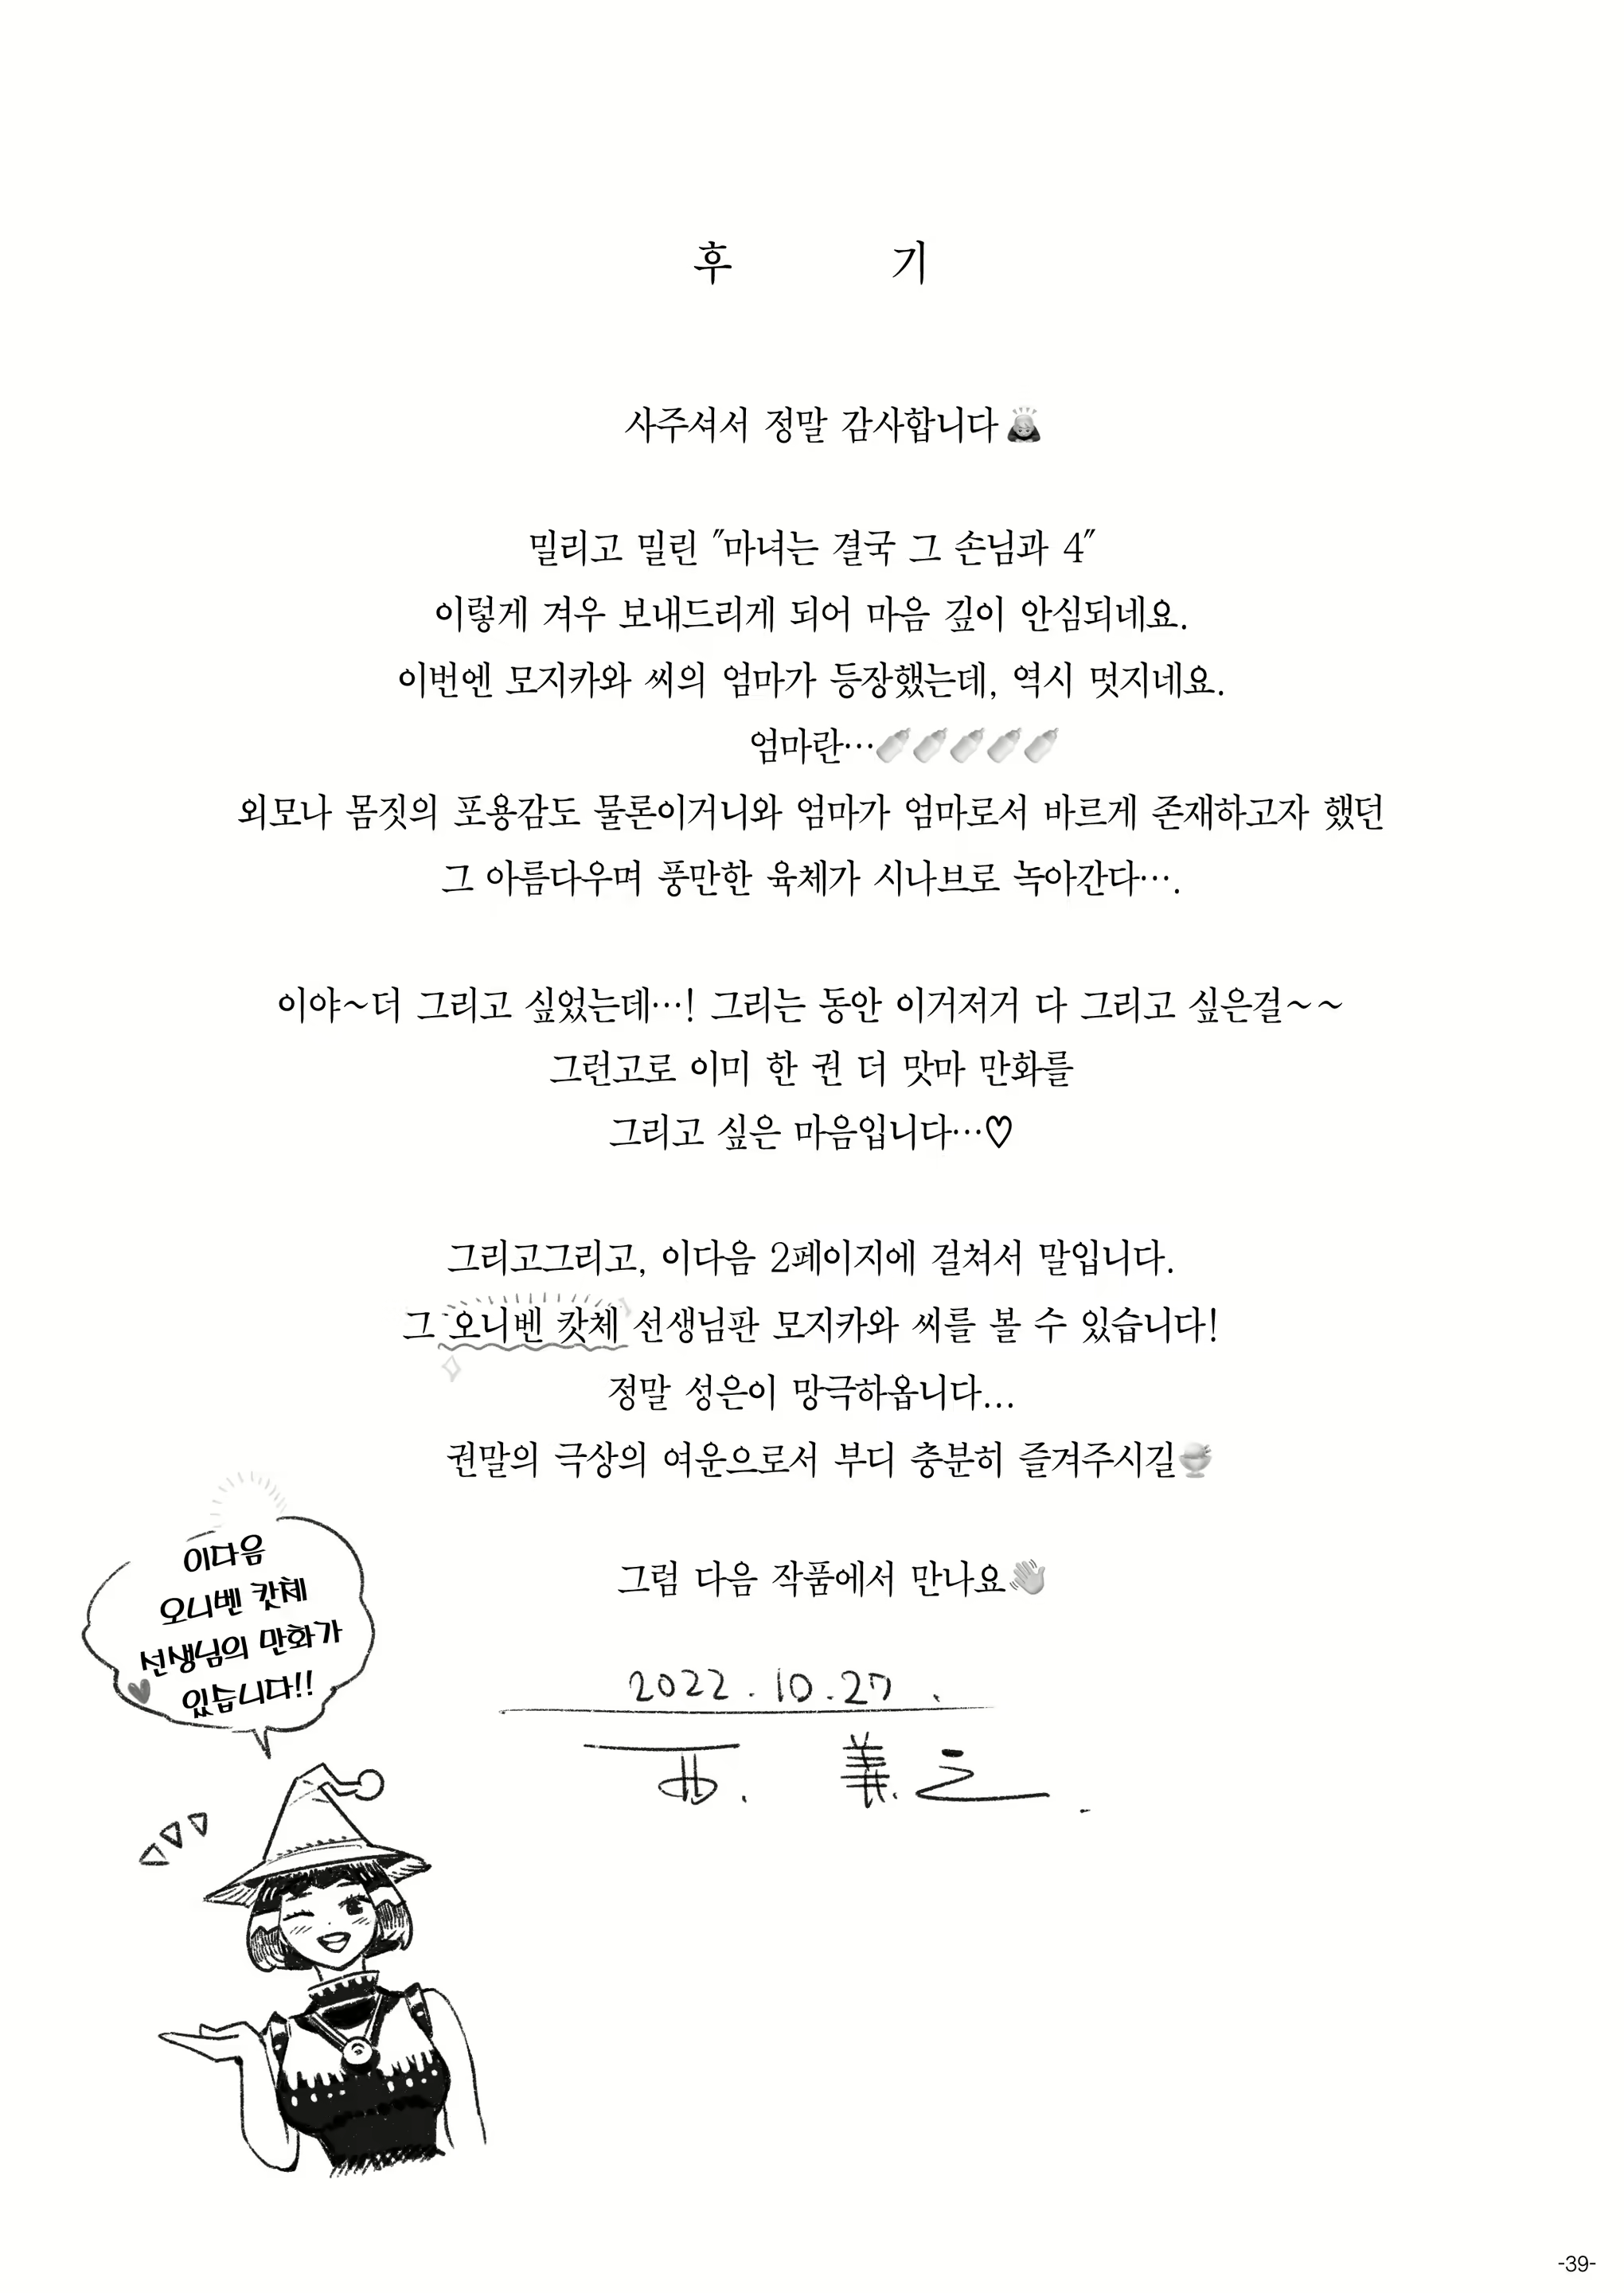 후 기
사주셔서 정말 감사합니다🙇
밀리고 밀린 "마녀는 결국 그 손님과 4"
이렇게 겨우 보내드리게 되어 마음 깊이 안심되네요.
이번엔 모지카와 씨의 엄마가 등장했는데, 역시 멋지네요.
엄마란…🍼🍼🍼🍼🍼
외모나 몸짓의 포용감도 물론이거니와 엄마가 엄마로서 바르게 존재하고자 했던
그 아름다우며 풍만한 육체가 시나브로 녹아간다….
이야~더 그리고 싶었는데…! 그리는 동안 이거저거 다 그리고 싶은걸~~
그런고로 이미 한 권 더 맛마 만화를
그리고 싶은 마음입니다…♡
그리고그리고, 이다음 2페이지에 걸쳐서 말입니다.
그 오니벤 캇체 선생님판 모지카와 씨를 볼 수 있습니다!
정말 성은이 망극하옵니다...
권말의 극상의 여운으로서 부디 충분히 즐겨주시길🍨
그럼 다음 작품에서 만나요👋
이다음
오니벤 캇체
선생님의 만화가
있습니다!!
2022.10.27.
西. 義之.
-39-